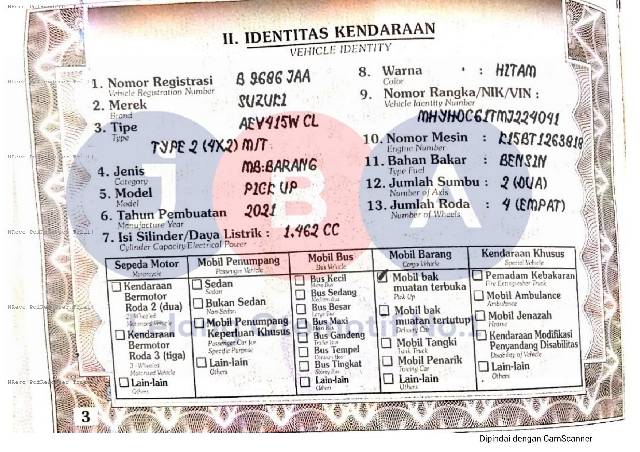 II. IDENTITAS KENDARAAN
VEHICLE IDENTITY
1. Nomor Registrasi B 9686 JAA
Vehicle Registration Number
2. Merek SUZUKI
Brand
3. Tipe AEV415W CL
Type
TYPE 2 (4X2) M/T
4. Jenis MB.BARANG
Category
5. Model PICK UP
Model
6. Tahun Pembuatan 2021
Manufacture Year
7. Isi Silinder/Daya Listrik : 1.462 CC
Cylinder Capacity/Electrical Power
8. Warna : HITAM
Color
9. Nomor Rangka/NIK/VIN :
Vehicle Identity Number
MHYHDC61TMJ224041
10. Nomor Mesin : K15BT1263818
Engine Number
11. Bahan Bakar : BENSIN
Type Fuel
12. Jumlah Sumbu : 2 (DUA)
Number of Axis
13. Jumlah Roda : 4 (EMPAT)
Number of Wheels
Sepeda Motor
Motorcycle
Kendaraan
Bermotor
Roda 2 (dua)
2-Wheeled
Motorized Vehicle
Kendaraan
Bermotor
Roda 3 (tiga)
3-Wheeled
Motorized Vehicle
Lain-lain
Others
Mobil Penumpang
Passenger Vehicle
Sedan
Sedan
Bukan Sedan
Non-Sedan
Mobil Penumpang
Keperluan Khusus
Passenger Car for
Specific Purpose
Lain-lain
Others
Mobil Bus
Bus Vehicle
Bus Kecil
Bus Sedang
Bus Besar
Bus Maxi
Bus Gandeng
Bus Tempel
Bus Tingkat
Lain-lain
Others
Mobil Barang
Cargo Vehicle
Mobil bak
muatan terbuka
Pick Up
Mobil bak
muatan tertutup
Mobil Tangki
Tank Truck
Mobil Penarik
Towing Car
Lain-lain
Others
Kendaraan Khusus
Special Vehicle
Pemadam Kebakaran
Fire Extinguisher Truck
Mobil Ambulance
Ambulance
Mobil Jenazah
Hearse
Kendaraan Modifikasi
Penyandang Disabilitas
Disability of Vehicle
Lain-lain
Others
JBA
3
Dipindai dengan CamScanner